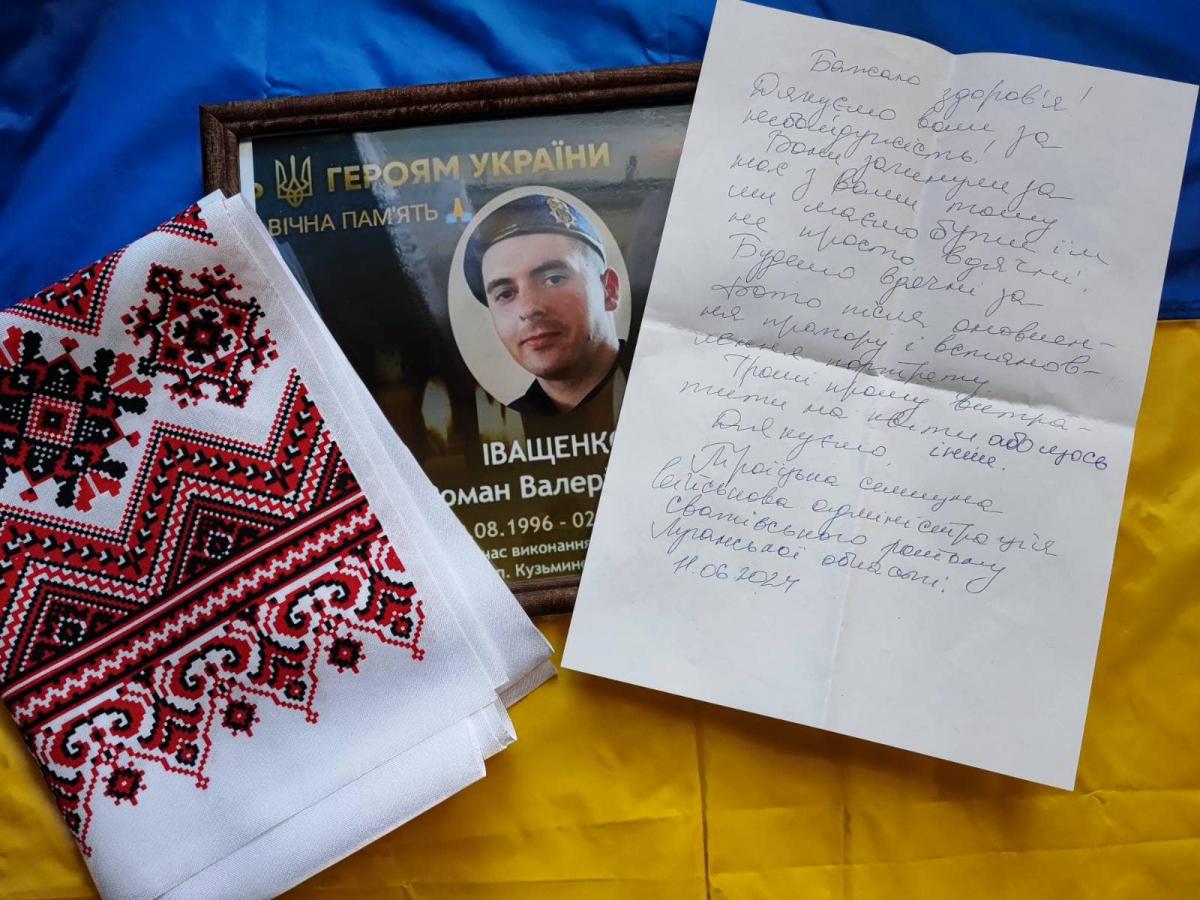 ГЕРОЯМ УКРАЇНИ
ВІЧНА ПАМ'ЯТЬ 🙏
ІВАЩЕНКО
оман Валері
.08.1996 - 02
час виконання
п. Кузьмине
Бажаю здоров'я!
Дякуємо вам за
небайдужість!
Вони загинули за
нас з вами тому
ми маємо бути їм
не просто вдячні.
Будемо вдячні за
фото після оновлен-
ня прапору і встанов-
лення портрету
Гроші прошу витра-
тити на квіти або щось
інше.
Дякуємо.
Троїцька селищна
військова адміністрація
Сватівського району
Луганської області.
11.06.2024